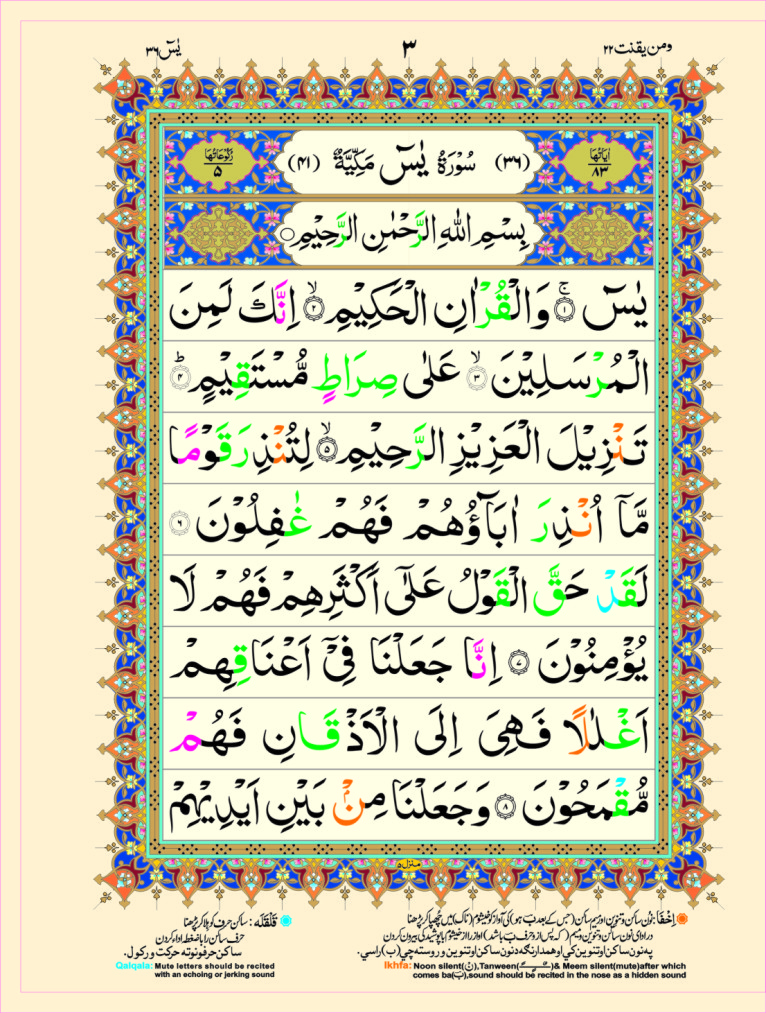 ومن یقنت ٢٢
٣
یٰسٓ ٣٦
اٰیَاتُهَا ٨٣
(٣٦) سُوْرَةُ یٰسٓ مَكِّیَّةٌ (٤١)
رُكُوْعَاتُهَا ٥
بِسْمِ اللّٰهِ الرَّحْمٰنِ الرَّحِیْمِ
یٰسٓ ۚ﴿١﴾ وَالْقُرْاٰنِ الْحَكِیْمِ ۙ﴿٢﴾ اِنَّكَ لَمِنَ
الْمُرْسَلِیْنَ ۙ﴿٣﴾ عَلٰی صِرَاطٍ مُّسْتَقِیْمٍ ؕ﴿٤﴾
تَنْزِیْلَ الْعَزِیْزِ الرَّحِیْمِ ۙ﴿٥﴾ لِتُنْذِرَ قَوْمًا
مَّاۤ اُنْذِرَ اٰبَآؤُهُمْ فَهُمْ غٰفِلُوْنَ ﴿٦﴾
لَقَدْ حَقَّ الْقَوْلُ عَلٰۤی اَكْثَرِهِمْ فَهُمْ لَا
یُؤْمِنُوْنَ ﴿٧﴾ اِنَّا جَعَلْنَا فِیْۤ اَعْنَاقِهِمْ
اَغْلٰلًا فَهِیَ اِلَی الْاَذْقَانِ فَهُمْ
مُّقْمَحُوْنَ ﴿٨﴾ وَجَعَلْنَا مِنْۢ بَیْنِ اَیْدِیْهِمْ
منزل ٥
اِخْفَا: نون ساکن و تنوین اور میم ساکن (جس کے بعد ب ہو) کی آواز کو خیشوم (ناک) میں چھپا کر پڑھنا
در ادای نون ساکن و تنوین و میم (که پس از و حرف ب باشد) آواز را از خیشوم با پوشیدگی بیرون کردن
په نون ساکن او تنوین کی او همدارنگه د نون ساکن او تنوین وروسته چي (ب) راسي.
Ikhfa: Noon silent(نْ),Tanween(ـًـٍـٌ)& Meem silent(mute)after which
comes ba(ب),sound should be recited in the nose as a hidden sound
قَلْقَلَه: ساکن حرف کو ہلا کر پڑھنا
حرف ساکن را باضغط اداء کردن
ساکن حرفونو ته حرکت ورکول.
Qalqala: Mute letters should be recited
with an echoing or jerking sound